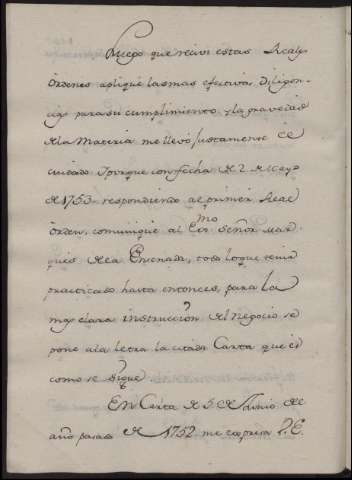 Luego que recivi estas Reales
Ordenes apliqué las mas efectivas Diligen-
cias para su cumplimiento, y la gravedad
de la Materia me llevó justamente el
cuidado Porque con fecha de 2 de Mayo
de 1753 respondiendo al primer Real
Orden, comuniqué al Exmo Señor Mar-
ques de la Ensenada, todo lo que tenia
practicado hasta entonces, para la
mas clara instruccion del Negocio se
pone a la letra la citada Carta que es
como se sigue
En Carta de 5 de Junio de
año pasado de 1752 me expresa V.E.